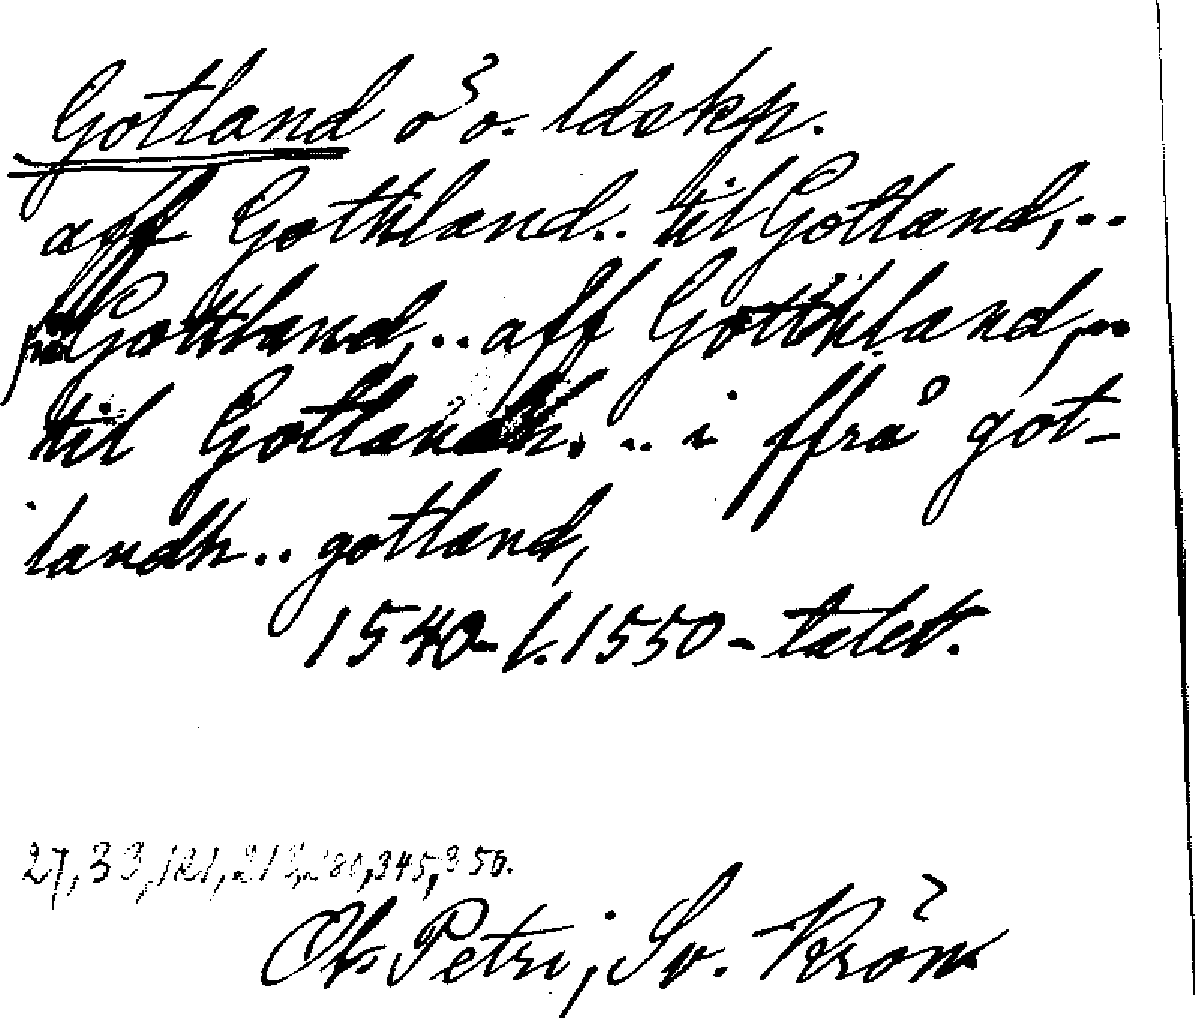 Gotland ö o. ldskp.
aff Gothland.. til Gotland,..
från Gottland,.. aff Gotthland,..
til Gotlandh... i ffrå got-
landh.. gotland,
1540- f. 1550-talet.
27, 33, 121, 213, 280, 345, 350.
Ol. Petri, Sv. Krön.